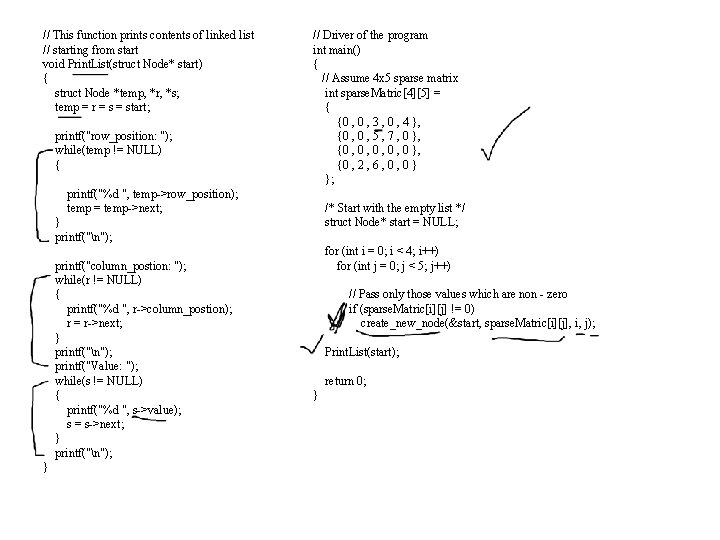 // This function prints contents of linked list
// starting from start
void PrintList(struct Node* start)
{
struct Node *temp, *r, *s;
temp = r = s = start;
printf("row_position: ");
while(temp != NULL)
{
printf("%d ", temp->row_position);
temp = temp->next;
}
printf("\n");
printf("column_postion: ");
while(r != NULL)
{
printf("%d ", r->column_postion);
r = r->next;
}
printf("\n");
printf("Value: ");
while(s != NULL)
{
printf("%d ", s->value);
s = s->next;
}
printf("\n");
}
// Driver of the program
int main()
{
// Assume 4x5 sparse matrix
int sparseMatric[4][5] =
{
{0 , 0 , 3 , 0 , 4 },
{0 , 0 , 5 , 7 , 0 },
{0 , 0 , 0 , 0 , 0 },
{0 , 2 , 6 , 0 , 0 }
};
/* Start with the empty list */
struct Node* start = NULL;
for (int i = 0; i < 4; i++)
for (int j = 0; j < 5; j++)
// Pass only those values which are non - zero
if (sparseMatric[i][j] != 0)
create_new_node(&start, sparseMatric[i][j], i, j);
PrintList(start);
return 0;
}